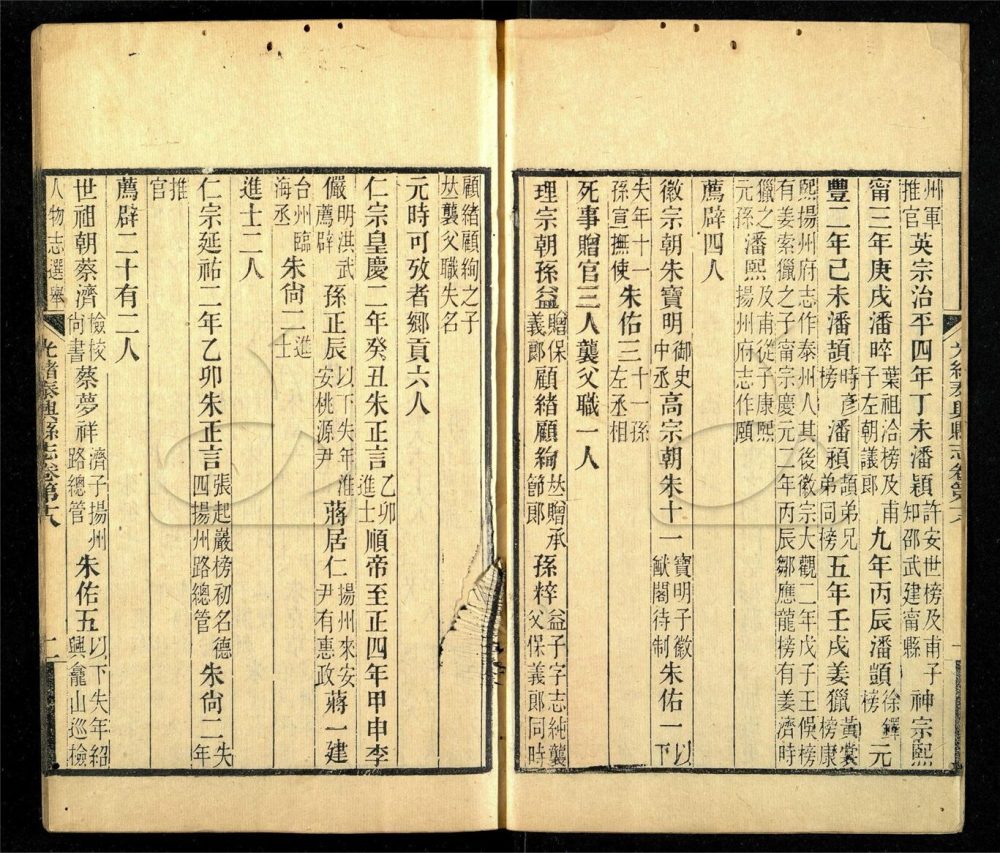 州軍推官英宗治平四年丁未潘穎許安世榜及甫子知邵武建甯縣神宗熙
甯三年庚戌潘晬葉祖洽榜及甫子左朝議郎九年丙辰潘顗徐鐸榜元
豐二年己未潘頡時彥榜潘頯頡弟兄弟同榜五年壬戌姜獵黃裳榜康
熙揚州府志作泰州人其後徽宗大觀二年戊子王俁榜
有姜索獵之子甯宗慶元二年丙辰鄒應龍榜有姜濟時
獵之元孫潘熙及甫從子康熙揚州府志作頤
薦辟四人
徽宗朝朱寶明御史中丞高宗朝朱十一寶明子徽猷閣待制朱佑一以下
失年十一孫宣撫使朱佑三十一孫左丞相
死事贈官三人襲父職一人
理宗朝孫益贈保義郎顧緒顧絢𠀤贈承節郎孫粹益子字志純襲父保義郎同時
顧緒顧絢之子𠀤襲父職失名
元時可攷者鄉貢六人
仁宗皇慶二年癸丑朱正言乙卯進士順帝至正四年甲申李
儼明洪武薦辟孫正辰以下失年淮安桃源尹蔣居仁揚州來安尹有惠政蔣一建
台州臨海丞朱尙二進士
進士二人
仁宗延祐二年乙卯朱正言張起巖榜初名德四揚州路總管朱尙二失年
推官
薦辟二十有二人
世祖朝蔡濟檢校尙書蔡夢祥濟子揚州路總管朱佑五以下失年紹興龕山巡檢
人物志選舉
光緒泰興縣志卷第十八